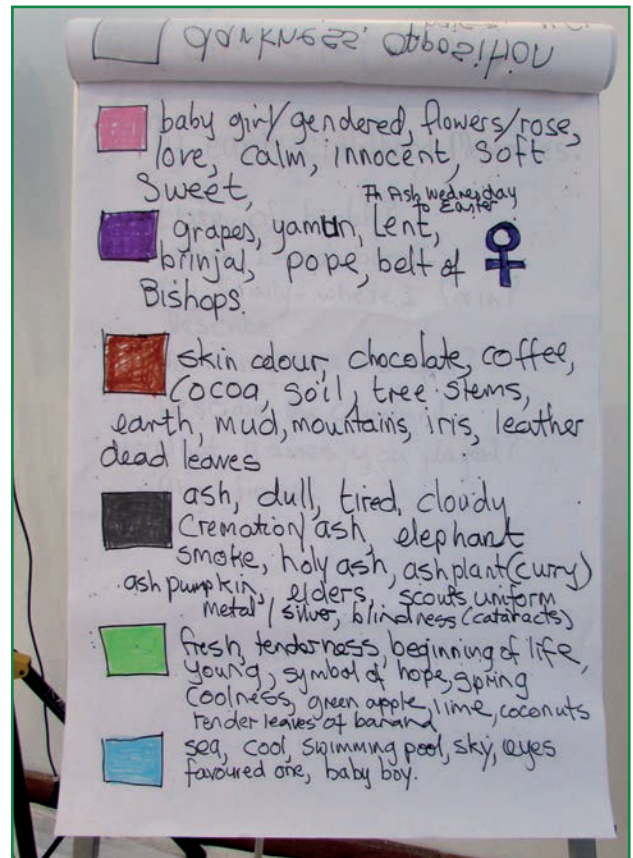 darkness, opposition
baby girl/gendered, flowers/rose,
love, calm, innocent, Soft
Sweet,
Ash Wednesday
to Easter
grapes, yamun, Lent,
brinjal, pope, belt of
Bishops.
skin colour, chocolate, coffee,
Cocoa, soil, tree stems,
earth, mud, mountains, iris, leather
dead leaves
ash, dull, tired, cloudy
Cremation/ash, elephant
smoke, holy ash, ash plant (curry)
ash pumpkin, elders, scouts uniform
metal / silver, blindness (cataracts)
fresh, tenderness, beginning of life,
young, symbol of hope, spring
Coolness, green apple, lime, coconuts
tender leaves of banana
sea, cool, swimming pool, sky, eyes
favoured one, baby boy.